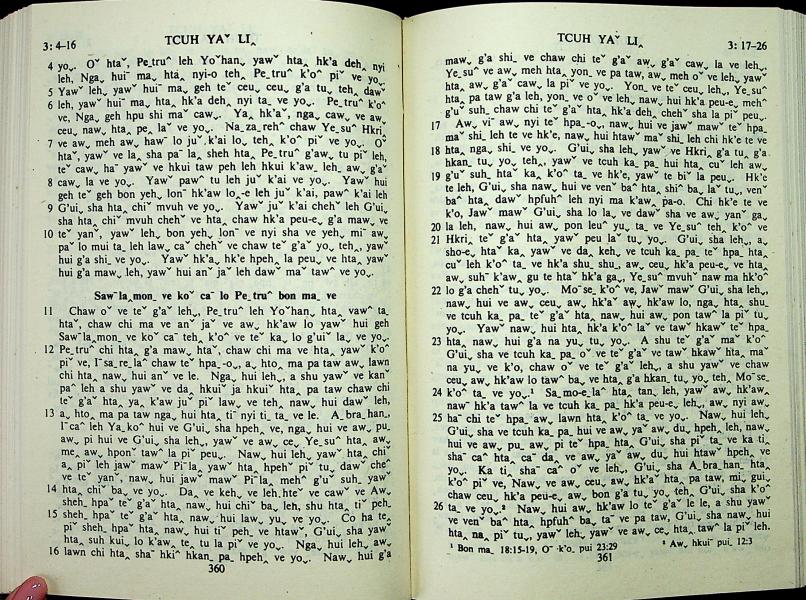 3: 4–16 TCUH YAˇ LIꞈ
4 yoˬ. Oˇ htaˇ, Pe_truˆ leh Yoˇhan, yawˇ htaꞈ hk'a dehˬ nyi
leh, Ngaˬ hui¯ maˬ htaꞈ nyi-o tehꞈ Pe_truˆ k'oˆ piˇ ve yoˬ.
5 Yawˇ leh, yawˇ hui¯ maˬ geh te¯ ceu ceuˬ g'a tuˬ tehꞈ dawˇ
6 leh, yawˇ hui¯ maˬ htaꞈ hk'a dehˬ nyi taˬ ve yoˬ. Pe_truˆ k'oˆ
ve, Ngaˬ geh hpu shi maˇ cawˬ. Yaꞈ hk'aˇ, ngaˬ cawˬ ve awˬ
ceuˬ nawˬ htaꞈ peˬ laˇ ve yoˬ. Na_za_reh^ chaw Ye_suˇ Hkriˬ
7 ve awˬ meh awˬ hawˇ lo juˇ k'ai lo, tehꞈ k'oˆ piˇ ve yoˬ. Oˇ
htaˇ, yawˇ ve laˬ sha paˇ laˬ sheh htaꞈ Pe_truˆ g'awˬ tu piˇ leh,
teˇ cawˬ haˇ yawˇ ve hkui taw peh leh hkui k'awˬ lehˬ awˬ g'aˇ
8 cawˬ la ve yoˬ. Yawˇ pawˇ tu leh juˇ k'ai ve yoˬ. Yawˇ hui
geh teˇ geh bon yehˬ lonˇ hk'aw lo_e leh juˇ k'ai, pawˇ k'ai leh
9 G'uiˬ sha htaꞈ chiˇ mvuh ve yoˬ. Yawˇ juˇ k'ai chehˇ leh G'uiˬ
sha htaꞈ chiˇ mvuh chehˇ ve htaꞈ chaw hk'a peu-eˬ g'a mawˬ ve
10 te¯ yanˇ, yawˇ leh, bon yehˬ lon¯ ve nyi sha ve yehˬ mi¯ awˬ
paˇ lo mui taˬ leh lawˬ ca¯ chehˇ ve chaw te¯ g'aˇ yoˬ tehꞈ yawˇ
hui g'a shiˬ ve yoˬ. Yawˇ hk'aꞈ hk'e hpehˬ la peuˬ ve htaꞈ yawˇ
hui g'a mawˬ leh, yawˇ hui anˇ jaˇ leh dawˇ ma¯ tawˇ ve yoˬ.
Saw¯la_mon_ ve koˇ ca¯ lo Pe_truˆ bon maˬ ve
11 Chaw oˇ ve te¯ g'aˇ lehˬ, Pe_truˆ leh Yoˇhanꞈ htaꞈ vawˆ taˬ
htaˇ, chaw chi ma ve anˇ jaˇ ve awˬ hk'aw lo yawˇ hui geh
Saw¯la_monˬ ve koˇ ca¯ tehꞈ k'oˆ ve teˇ kaˬ lo g'uiˇ laˬ ve yoˬ.
12 Pe_truˆ chi htaꞈ g'a mawˬ htaˇ, chaw chi ma ve htaꞈ yawˇ k'oˆ
piˇ ve, I¯sa_re_la^ chaw te¯ hpaˬ-oˬ, aˬ htoˬ ma paˬ taw awˬ lawn
chi htaꞈ nawˬ hui anˇ ve le. Ngaˬ hui lehˬ, a shu yawˇ ve kanˇ
paˆ leh a shu yawˇ ve daˬ hkuiˇ ja hkuiˇ htaꞈ pa taw chaw chi
te¯ g'aˇ htaꞈ yaꞈ k'aw juˇ piˇ lawˬ ve, tehꞈ nawˬ hui dawˇ leh,
13 aˬ htoˬ ma pa taw ngaˬ hui htaꞈ ti¯ nyi tiˬ taˬ ve le. A_bra_hanˬ,
I¯caˆ leh Ya_koˆ hui ve G'uiˬ sha hpehˬ ve, ngaˬ hui ve awˬ puˬ
awˬ pi hui ve G'uiˬ sha lehˬ, yawˇ ve awˬ ceˬ Ye_suˇ htaꞈ awˬ
meˬ awˬ hponˇ tawˇ la piˇ peuˬ. Nawˬ hui leh, yawˇ htaꞈ chiˇ
aˬ piˇ leh jawˇ mawˇ Pi¯laˬ yawˇ htaꞈ hpehˇ piˇ tuˬ dawˇ cheˇ
ve te¯ yanˇ, nawˬ hui jawˇ mawˇ Pi¯laˬ mehˇ g'uˇ suhˬ yawˇ
14 htaꞈ chiˇ baˬ ve yoˬ. Daˬ ve kehˬ ve leh hte¯ ve cawˇ ve Awˬ
shehˬ hpaˇ te¯ g'aˇ htaꞈ nawˬ hui chiˇ baˬ leh, shu htaꞈ tiˇ pehˬ
15 shehˬ hpaˇ te¯ g'aˇ htaꞈ nawˬ hui lawˬ yuˬ ve yoˬ. Co ha teꞈ
piˇ shehˬ hpaˇ htaꞈ nawˬ hui tiˇ pehˬ ve htawˇ, G'uiˬ sha yawˇ
htaꞈ suh kuiˬ lo k'awꞈ teˬ tu la piˇ ve yoˬ. Ngaˬ hui leh, awˬ
16 lawn chi htaꞈ sha¯ hkiˆ hkanˬ paˬ hpehˬ ve yoˬ. Nawˬ hui g'a
360
TCUH YAˇ LIꞈ 3: 17–26
mawˬ g'a shiˬ ve chaw chi te¯ g'aˇ awˬ g'aˇ cawˬ la ve lehˬ,
Ye_suˇ ve awˬ meh htaꞈ yonˬ ve pa taw, awˬ meh oˇ ve leh, yawˇ
htaꞈ awˬ g'aˇ cawˬ la piˇ ve yoˬ. Yonˬ ve te¯ ceuˬ lehˬ, Ye_suˇ
htaꞈ pa taw g'a leh, yonˬ ve oˇ ve leh, nawˬ hui hk'a peu-eˬ mehˇ
g'uˇ suhˬ chaw chi te¯ g'aˇ htaꞈ hk'a dehˬ chehˇ sha la piˇ peuˬ.
17 Awˬ viˇ awˬ nyi te¯ hpaˬ-oˬ, nawˬ hui ve jawˇ mawˇ te¯ hpaˬ
ma¯ shiˬ leh te ve hk'e, nawˬ hui htawˇ ma¯ shiˬ leh chi hk'e te ve
18 htaꞈ ngaˬ shiˬ ve yoˬ. G'uiˬ sha leh, yawˇ ve Hkri_ g'a tuˬ g'a
hkanˬ tuˬ yoˬ tehꞈ, yawˇ ve tcuh kaˬ paˬ hui htaꞈ cuˇ leh awˬ
19 g'uˇ suhˬ htaˇ kaˇ k'oˆ taˬ ve hk'e, yawˇ te bi¯ la peuˬ. Hk'e
te leh, G'uiˬ sha nawˬ hui ve venˇ baˇ htaꞈ shiˆ baˬ laˇ tuˬ, venˇ
baˇ htaꞈ dawˇ hpfuhˇ leh nyi ma k'awꞈ pa-o. Chi hk'e te ve
k'o, Jawˇ mawˇ G'uiˬ sha lo laˬ ve dawˇ sha ve awˬ yanˇ gaˬ
20 la leh, nawˬ hui awˬ pon leuˇ yuˬ taˬ ve Ye_suˇ tehꞈ k'oˆ ve
21 Hkri_ te¯ g'aˇ htaꞈ yawˇ peu laˇ tuˬ yoˬ. G'uiˬ sha leh, aˬ
sho-eˬ htaˇ kaˇ yawˇ ve daˬ kehˬ ve tcuh kaˬ paˬ te¯ hpaˬ htaꞈ
cuˇ leh k'oˆ taˬ ve hk'a shu_shuˬ awˬ ceuˬ hk'a peu-eˬ ve htaꞈ
awˬ suh¯ k'awꞈ gu te htaˇ hk'a gaˬ, Ye_suˇ mvuhˇ naw ma hk'oˆ
22 lo g'a chehˇ tuˬ yoˬ. Mo¯seˬ k'oˆ ve, Jawˇ mawˇ G'uiˬ sha lehˬ,
nawˬ hui ve awˬ ceuˬ awˬ hk'aˇ awˬ hk'aw lo, ngaˬ htaꞈ shuˬ
ve tcuh kaˬ paˬ te¯ g'aˇ htaꞈ, nawˬ hui awˬ pon tawˇ la piˇ tuˬ
yoˬ. Yawˇ nawˬ hui htaꞈ hk'a k'oˆ laˇ ve tawˇ hkawˇ te¯ hpaˬ
23 htaꞈ nawˬ hui g'a na yuˬ tuˬ yoˬ. A shu te¯ g'aˇ maˇ k'oˆ
G'uiˬ sha ve tcuh kaˬ paˬ oˇ ve te¯ g'aˇ ve tawˇ hkawˇ htaꞈ ma¯
na yuˬ ve, k'o, chaw oˇ ve te¯ g'aˇ lehˬ, a shu yawˇ ve chaw
ceuˬ awˬ hk'aw lo tawˇ baˬ ve htaꞈ g'a hkanˬ tuˬ yoˬ, tehꞈ Mo¯seˬ
24 k'oˆ taˬ ve yoˬ.¹ Sa_mo-e_la^ htaꞈ tanˬ leh, yawˇ awˬ hk'awˬ
naw¯ hk'a tawˇ la ve tcuh kaˬ paˬ hk'a peu-eˬ lehˬ, awˬ nyi awˬ
25 ha¯ chi te¯ hpaˬ awˬ lawn htaꞈ k'oˆ taˬ ve yoˬ. Nawˬ hui lehˬ,
G'uiˬ sha ve tcuh kaˬ paˬ hui ve awˬ yaˇ awˬ duˬ hpehˬ leh, nawˬ
hui ve awˬ puˬ awˬ pi te¯ hpaˬ htaꞈ G'uiˬ sha piˇ taˬ ve ka tiˬ
sha¯ caˆ htaꞈ ca¯ daˬ ve awˬ yaˇ awˬ duˬ hui htawˇ hpehˬ ve
yoˬ. Ka tiˬ sha¯ caˆ oˇ ve lehˬ, G'uiˬ sha A_bra_hanˬ htaꞈ
k'oˆ piˇ ve, Nawˬ ve awˬ ceuˬ awˬ hk'aˇ htaꞈ pa taw, miˬ guiˬ
chaw ceuˬ hk'a peu-eˬ awˬ bon g'a tuˬ yoˬ tehꞈ G'uiˬ sha k'oˆ
26 taˬ ve yoˬ.² Nawˬ hui awˬ hk'aw lo te¯ g'aˇ le le, a shu yawˇ
ve venˇ baˇ htaꞈ hpfuhˇ baˬ taˇ ve pa taw, G'uiˬ sha nawˬ hui
htaꞈ naꞈ pa piˇ tuˬ, yawˇ leh, yawˇ ve awˬ ceˬ htaꞈ tawˇ la piˇ leh.
¹ Bon maˬ 18:15-19, Oˇ k'oˬ pui 23:29 ² Awˬ hkui¯ puiˬ 12:3
361